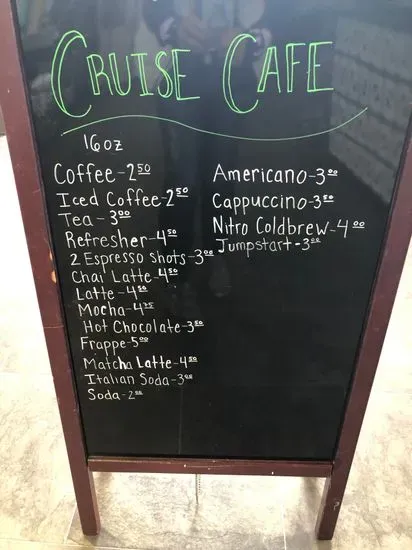 CRUISE CAFE
16oz
Coffee-2.50
Iced Coffee-2.50
Tea-3.00
Refresher-4.50
2 Espresso Shots-3.00
Chai Latte-4.50
Latte-4.50
Mocha-4.75
Hot Chocolate-3.50
Frappe-5.00
Matcha Latte-4.50
Italian Soda-3.00
Soda-2.00
Americano-3.00
Cappuccino-3.50
Nitro Coldbrew-4.00
Jumpstart-3.00